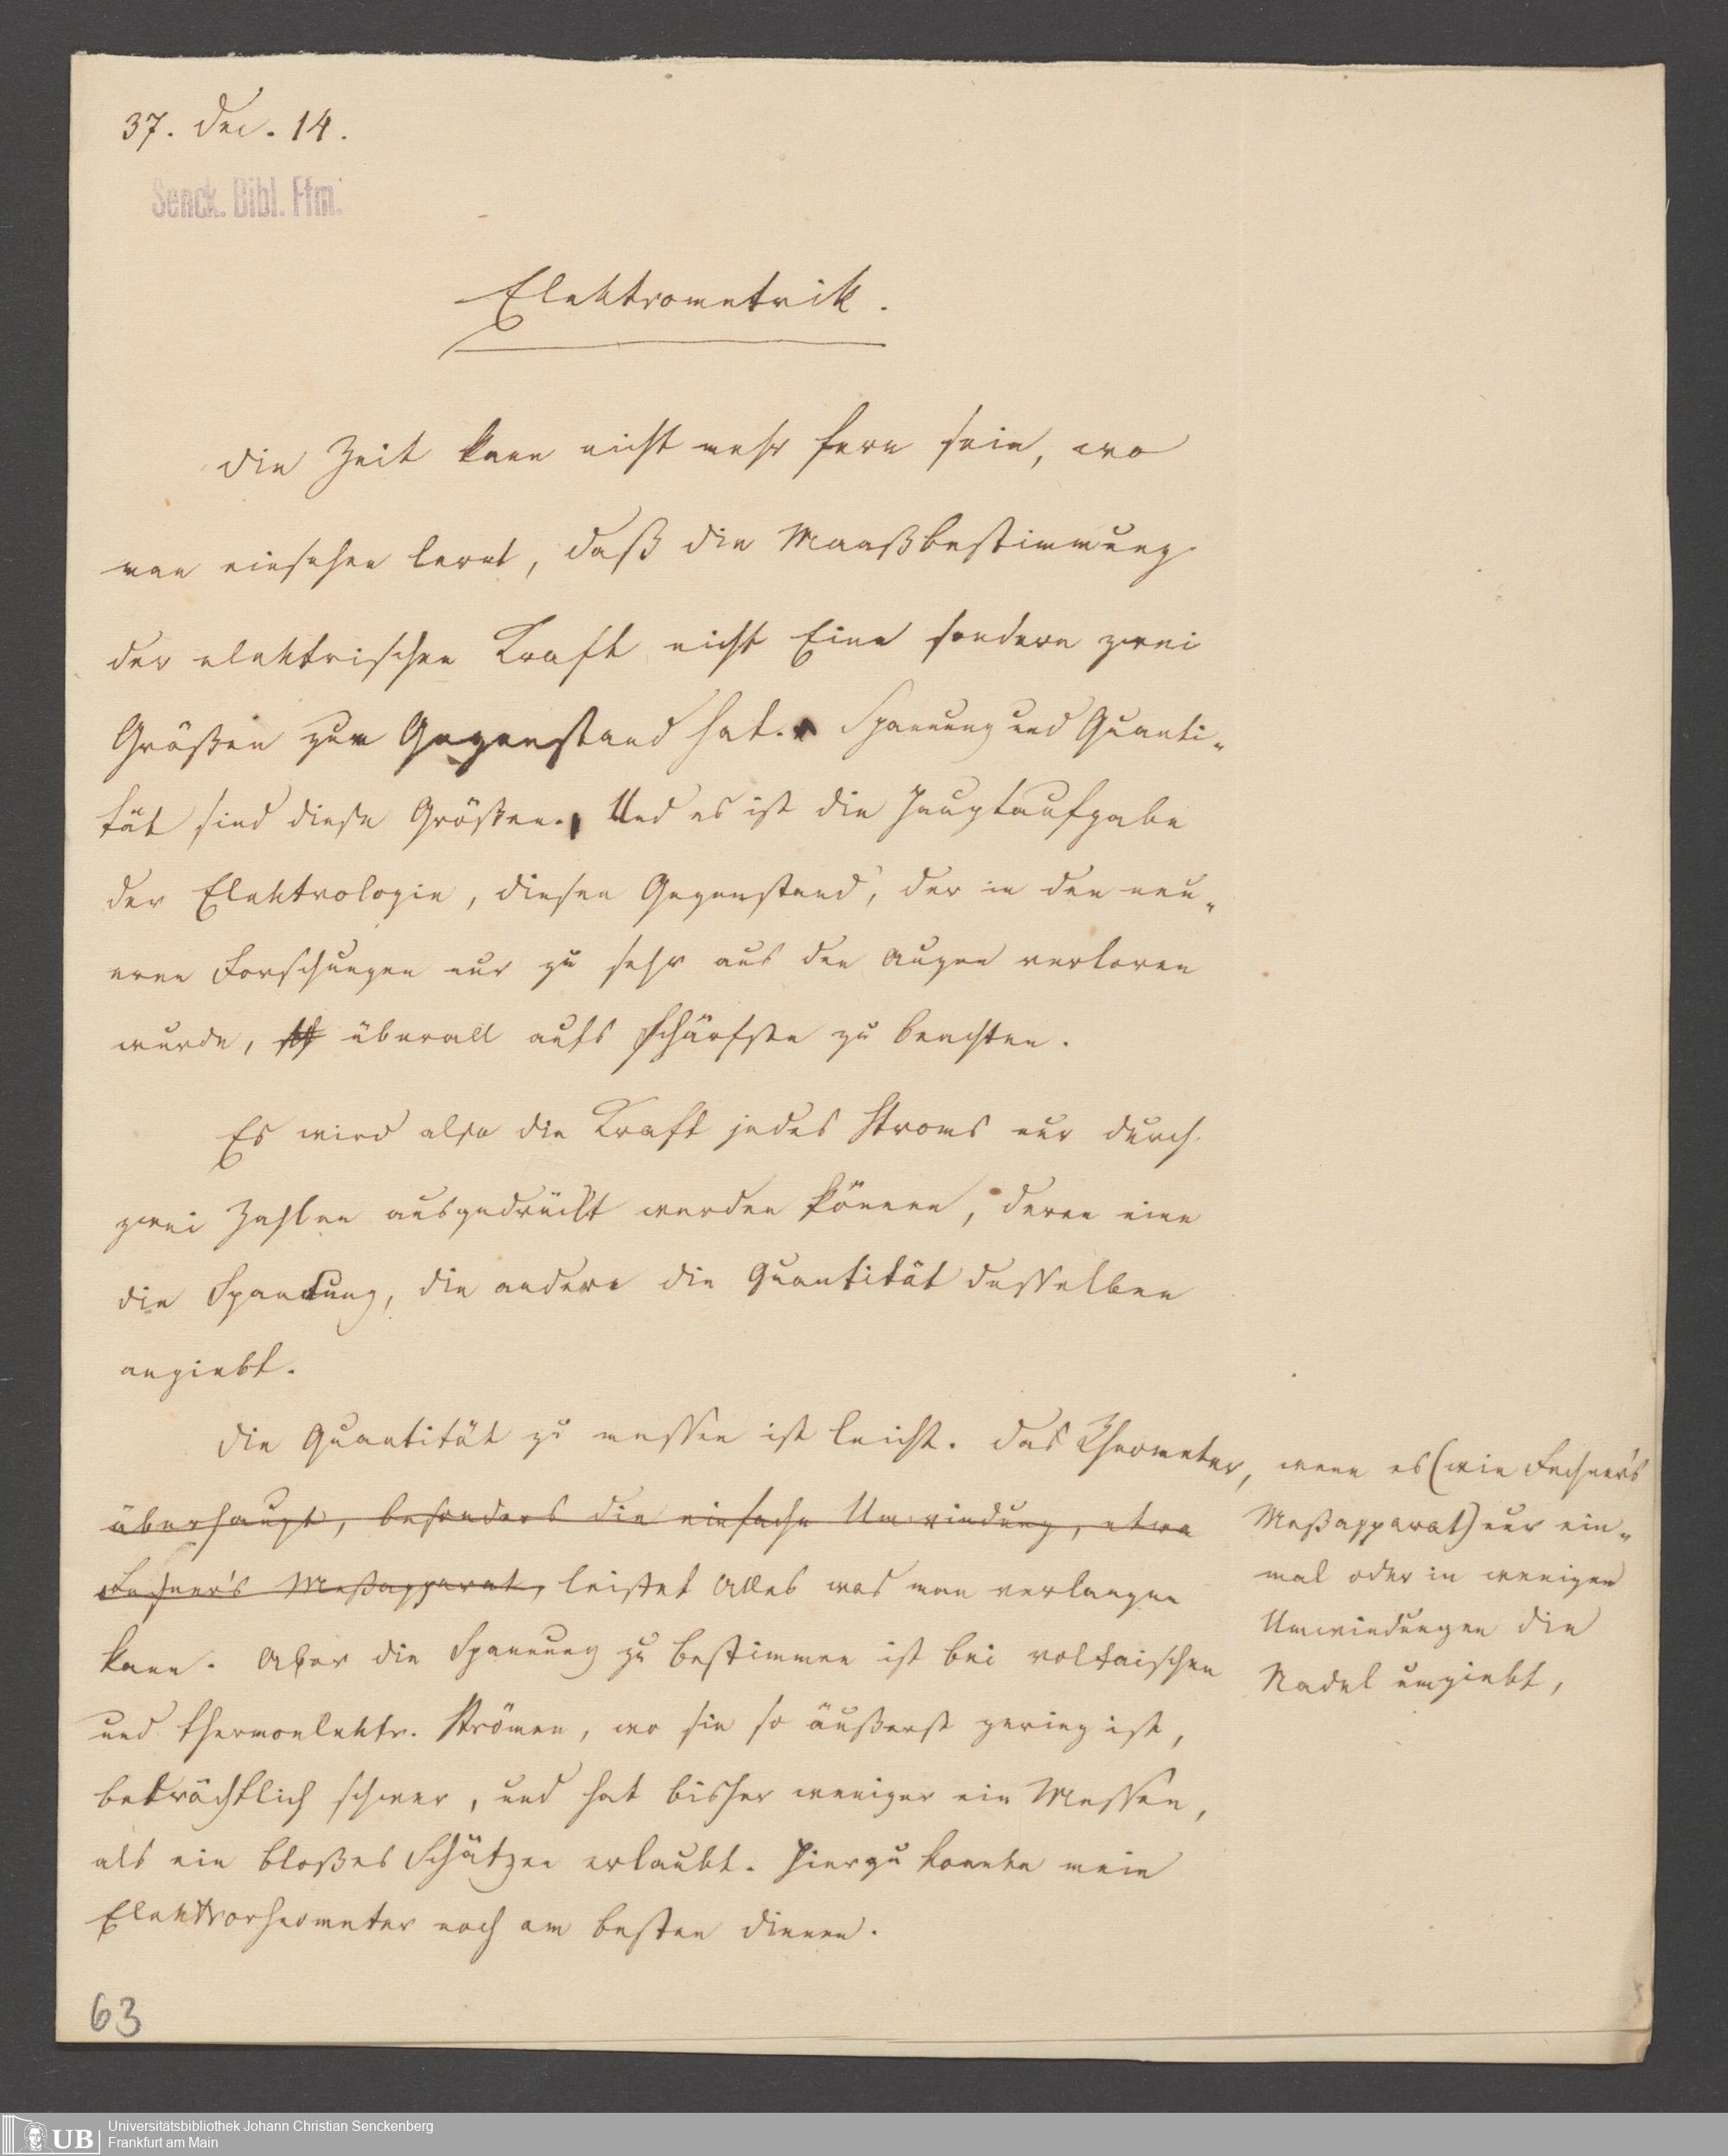 37. Dec. 14.
Senck. Bibl. Ffm.
Elektrometrik.
Die Zeit kann nicht mehr fern sein, wo
man einsehen lernt, daß die Maaßbestimmung
der elektrischen Kraft nicht Eine sondern zwei
Größen zum Gegenstand hat. Spannung und Quanti-
tät sind diese Größen. Und es ist die Hauptaufgabe
der Elektrologie, diesen Gegenstand, der in den neu-
eren Forschungen nur zu sehr aus den Augen verloren
wurde, überall aufs Schärfste zu beachten.
Es wird also die Kraft jedes Stroms nur durch
zwei Zahlen ausgedrückt werden können, deren eine
die Spannung, die andere die Quantität desselben
angiebt.
Die Quantität zu messen ist leicht. Das Rheometer,
überhaupt, besonders die einfache Umwindung, etwa
Fechner's Meßapparat, leistet Alles was man verlangen
kann. Aber die Spannung zu bestimmen ist bei voltaischen
und thermoelektr. Strömen, wo sie so äußerst gering ist,
beträchtlich schwer, und hat bisher weniger ein Messen,
als ein bloßes Schätzen erlaubt. Hierzu konnte mein
Elektrorheometer noch am besten dienen.
wenn es (wie Fechner's
Meßapparat) nur ein-
mal oder in wenigen
Umwindungen die
Nadel umgiebt,
63
UB
Universitätsbibliothek Johann Christian Senckenberg
Frankfurt am Main